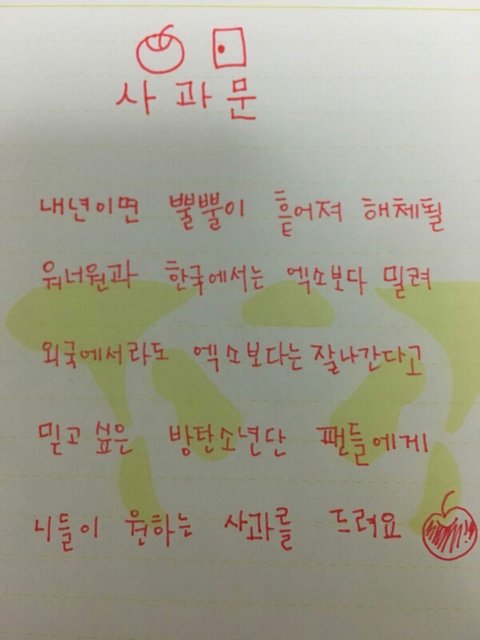 사과문
내년이면 뿔뿔이 흩어져 해체될
워너원과 한국에서는 엑소보다 밀려
외국에서라도 엑소보다는 잘나간다고
믿고 싶은 방탄소년단 팬들에게
니들이 원하는 사과를 드려요